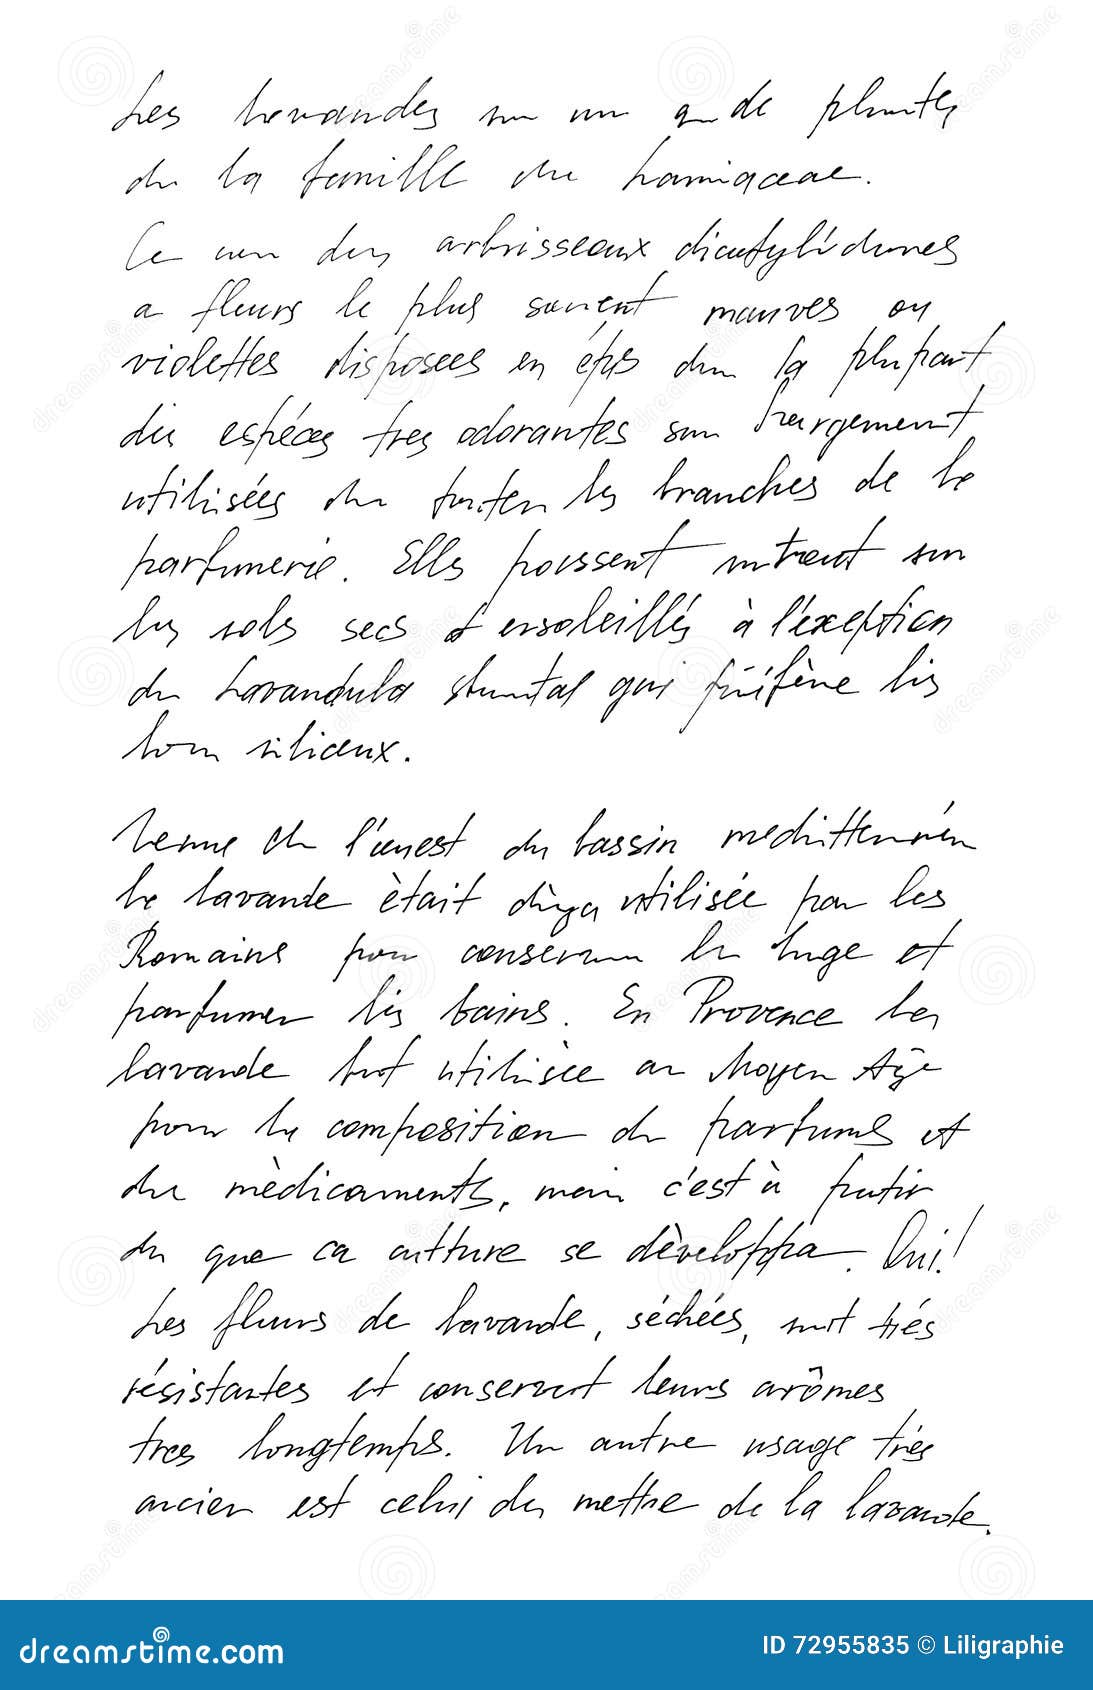 Les lavandes
de la famille de Lamiaceae.
Ce arbrisseaux dicotylédones
a fleurs le plus souvent mauves ou
violettes disposées en épis dans la plupart
des espèces tres odorantes sont largement
utilisées dans toutes les branches de la
parfumerie. Elles poussent surtout sur
les sols secs et ensoleillés à l'éxception
du Lavandula qui préfère les
siliceux.
l'ouest du bassin
la lavande ètait utilisée par les
Romains pour conserver le linge et
parfumer les bains. En Provence la
lavande fut utilisée au Moyen Age
pour la composition de parfums et
de mèdicaments, mais c'est à
du que sa culture se dèveloppa. Oui!
Les fleurs de lavande, séchées, sont trés
résistantes et conservent leurs arômes
tres longtemps. Un autre usage trés
ancien est celui de mettre de la lavande.
dreamstime.com
ID 72955835 © Liligraphie